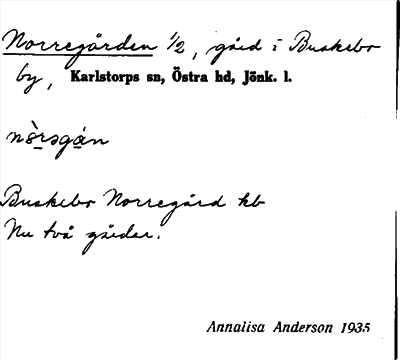 Norregården 1/2, gård i Buskebo
by, Karlstorps sn, Östra hd, Jönk. l.
nòrsgán
Buskebo Norregård kb
Nu två gårdar.
Annalisa Anderson 1935